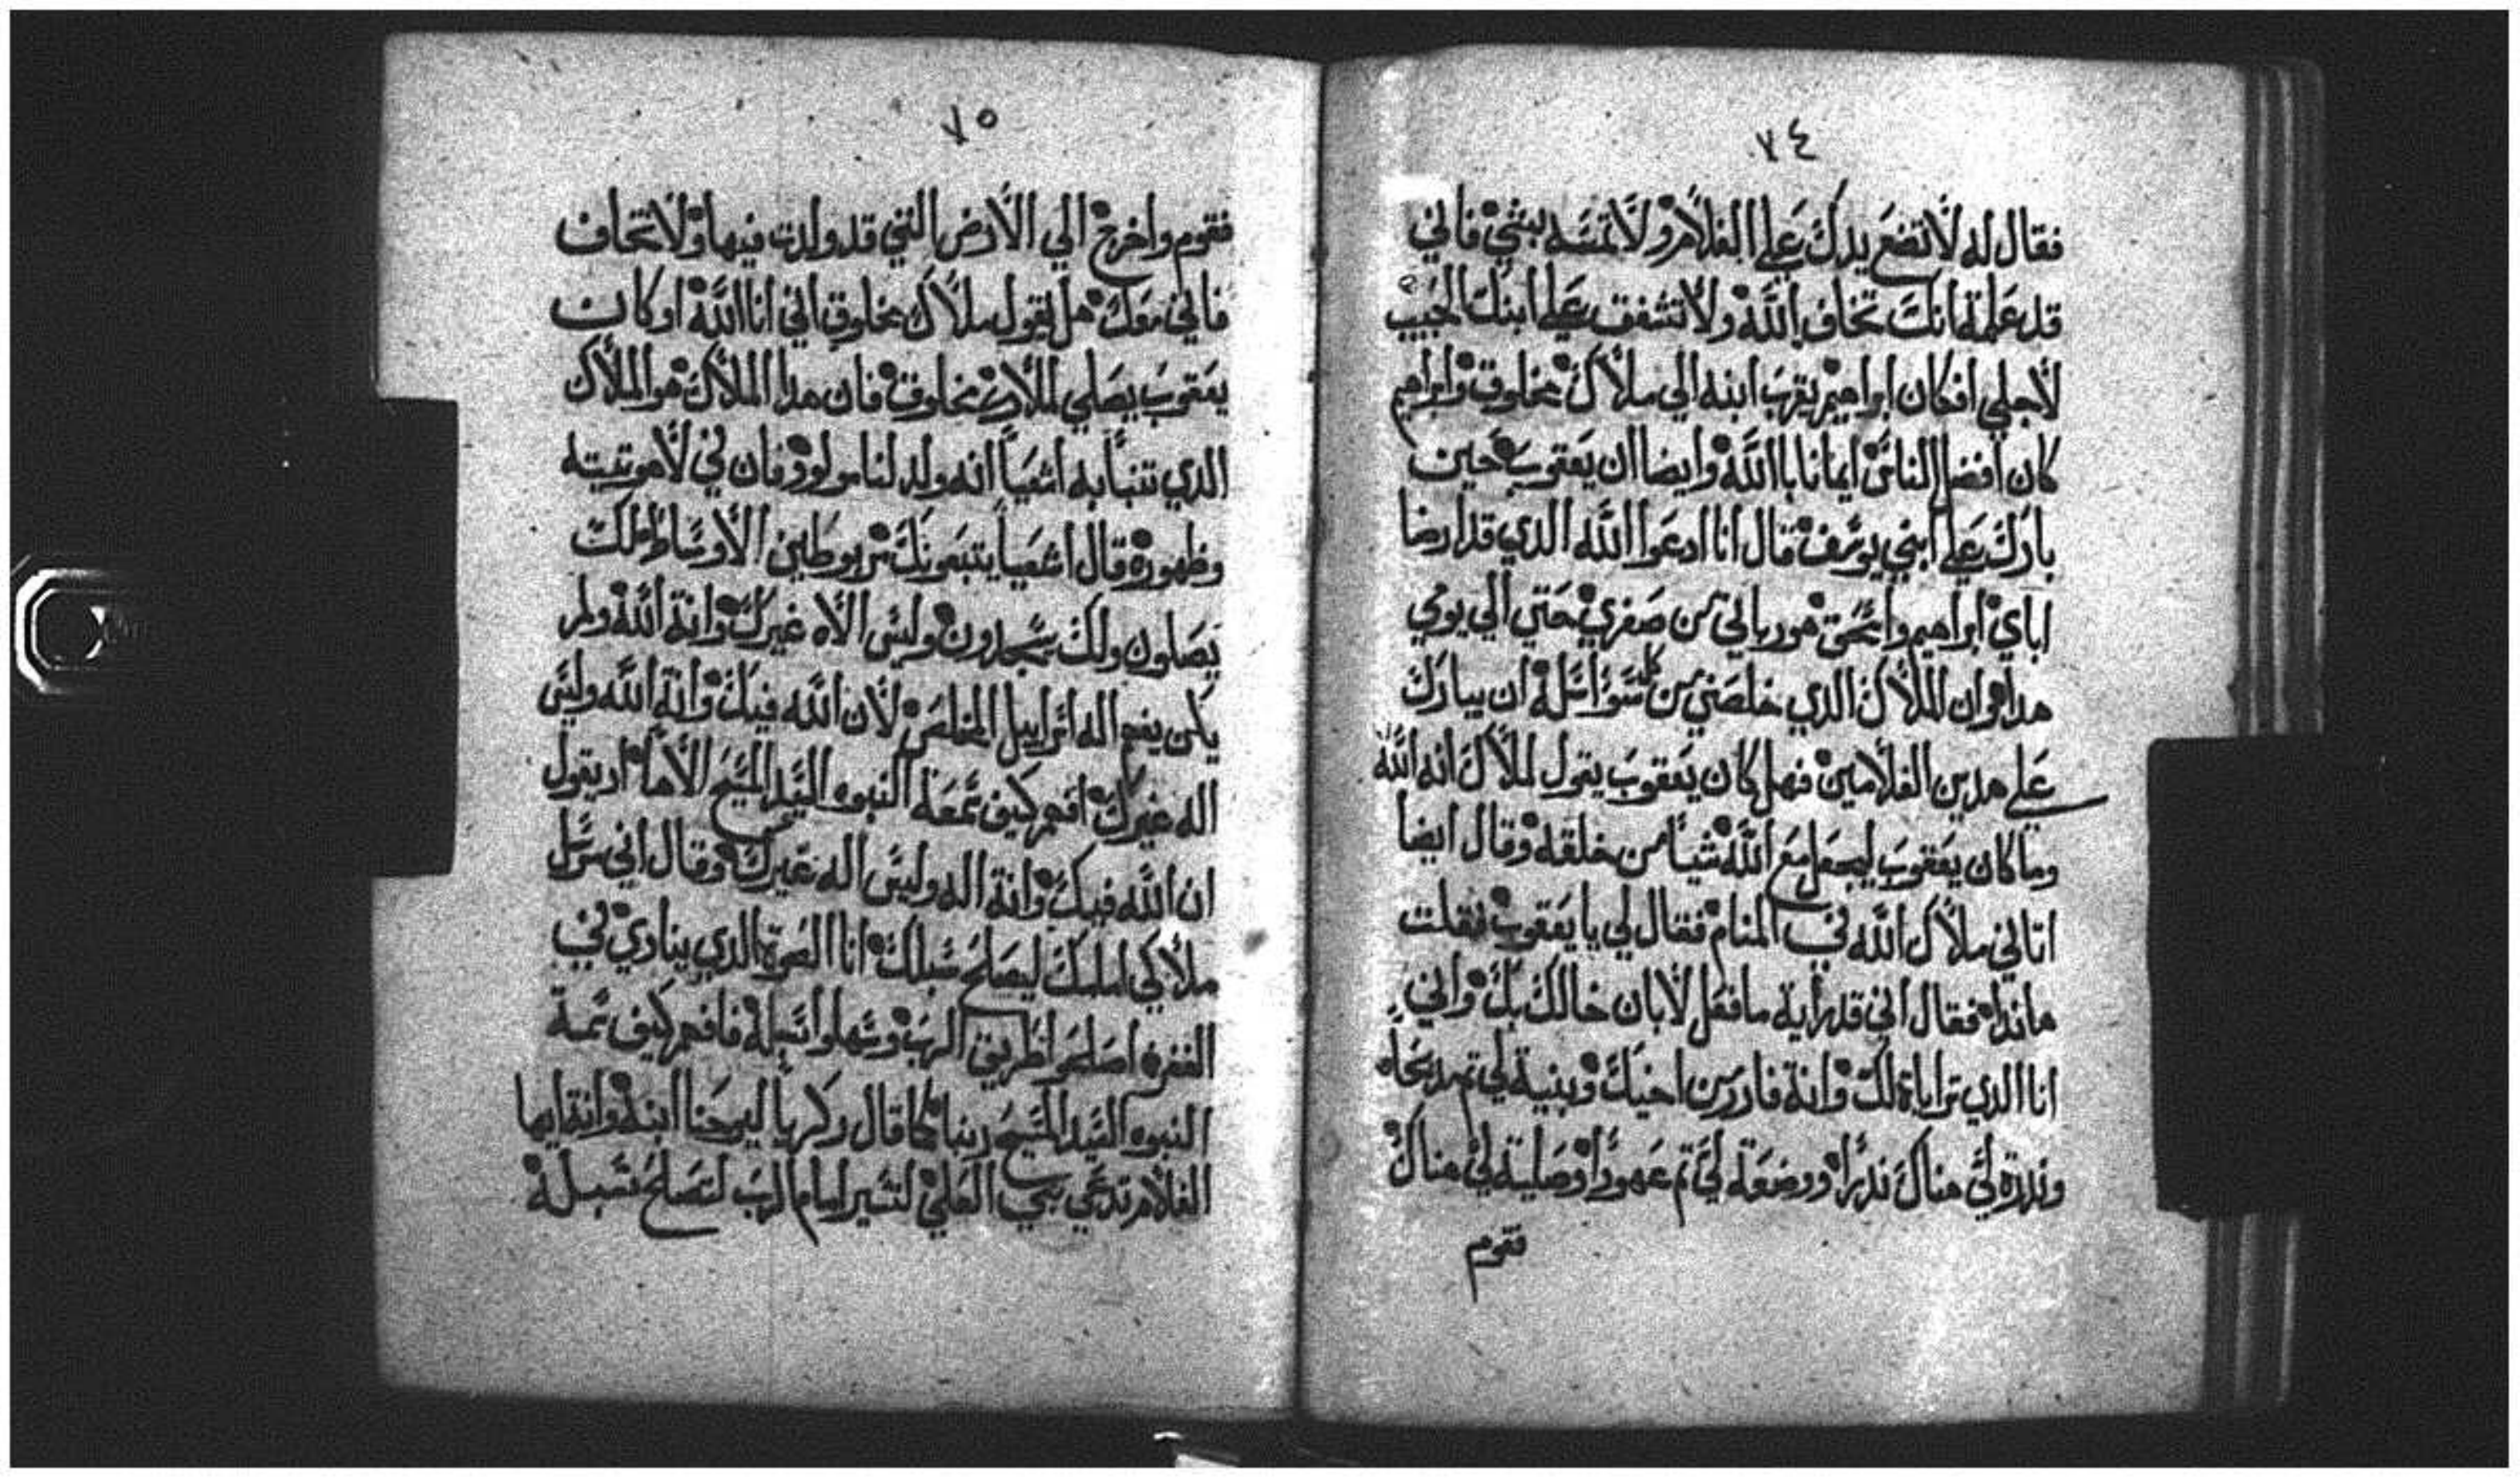 ٧٤
فقال له لا تضع يدك علي الغلام ولا تمسه بشي فاني
قد علمة انك تخاف الله ولا تشفق علي ابنك الحبيب
لاجلي افكان ابراهيم يقرب ابنه الي ملاك مخلوق وابراهيم
كان افضل الناس ايمانا باالله وايضا ان يعقوب حين
بارك علي ابني يوسف قال انا ادعوا الله الذي قد ارضا
اباي ابراهيم واسحق هو رباني من صغري حتي الي يومي
هدا هوان الملاك الذي خلصني من كل سوا اسله ان يبارك
علي هدين الغلامين فهل كان يعقوب يقول لملاك انه الله
وما كان يعقوب ليجعل مع الله شيا من خلقه وقال ايضا
اتاني ملاك الله في المنام فقال لي يا يعقوب فقلت
هاندا فقال اني قد راية ما فعل لابان خالك بك واني
انا الدي تراياة لك وانة فارر من اخيك وبنية لي تم مدبحاه
وندرة لي هناك ندرا ووضعة لي تم عهودا وصلية لي هناك
فقوم
٧٥
فقوم واخرج الي الارض التي قد ولدت فيها ولا تخاف
فاني معك هل يقول ملاك مخلوق اني انا الله او كان
يعقوب يصلي لملاك مخلوق فان هدا الملاك هو الملاك
الدي تنبا به اشعيا انه ولد لنا مولود فان في لاهوتيته
وظهوره قال اشعيا يتبعونك مربوطين الاوساط لك
يصلون ولك يسجدون وليس الاه غيرك وانة الله ولم
يكن يفهم اله اسراييل المخلص لان الله فيك وانة الله وليس
اله غيرك افهم كيف سمعة النبوه السيد المسيح الاها اد يقول
ان الله فيك وانة اله وليس اله غيرك وقال اني مرسل
ملاكي امامك ليصلح سبلك انا الصوة الدي ينادي في
القفره اصلحوا طريق الرب وسهلوا سبله فافهم كيف سمة
النبوه السيد المسيح ربنا كما قال زكريا ليوحنا ابنه وانة ايها
الغلام تدعي نبي العلي لتسير امام الرب لتصلح سبله